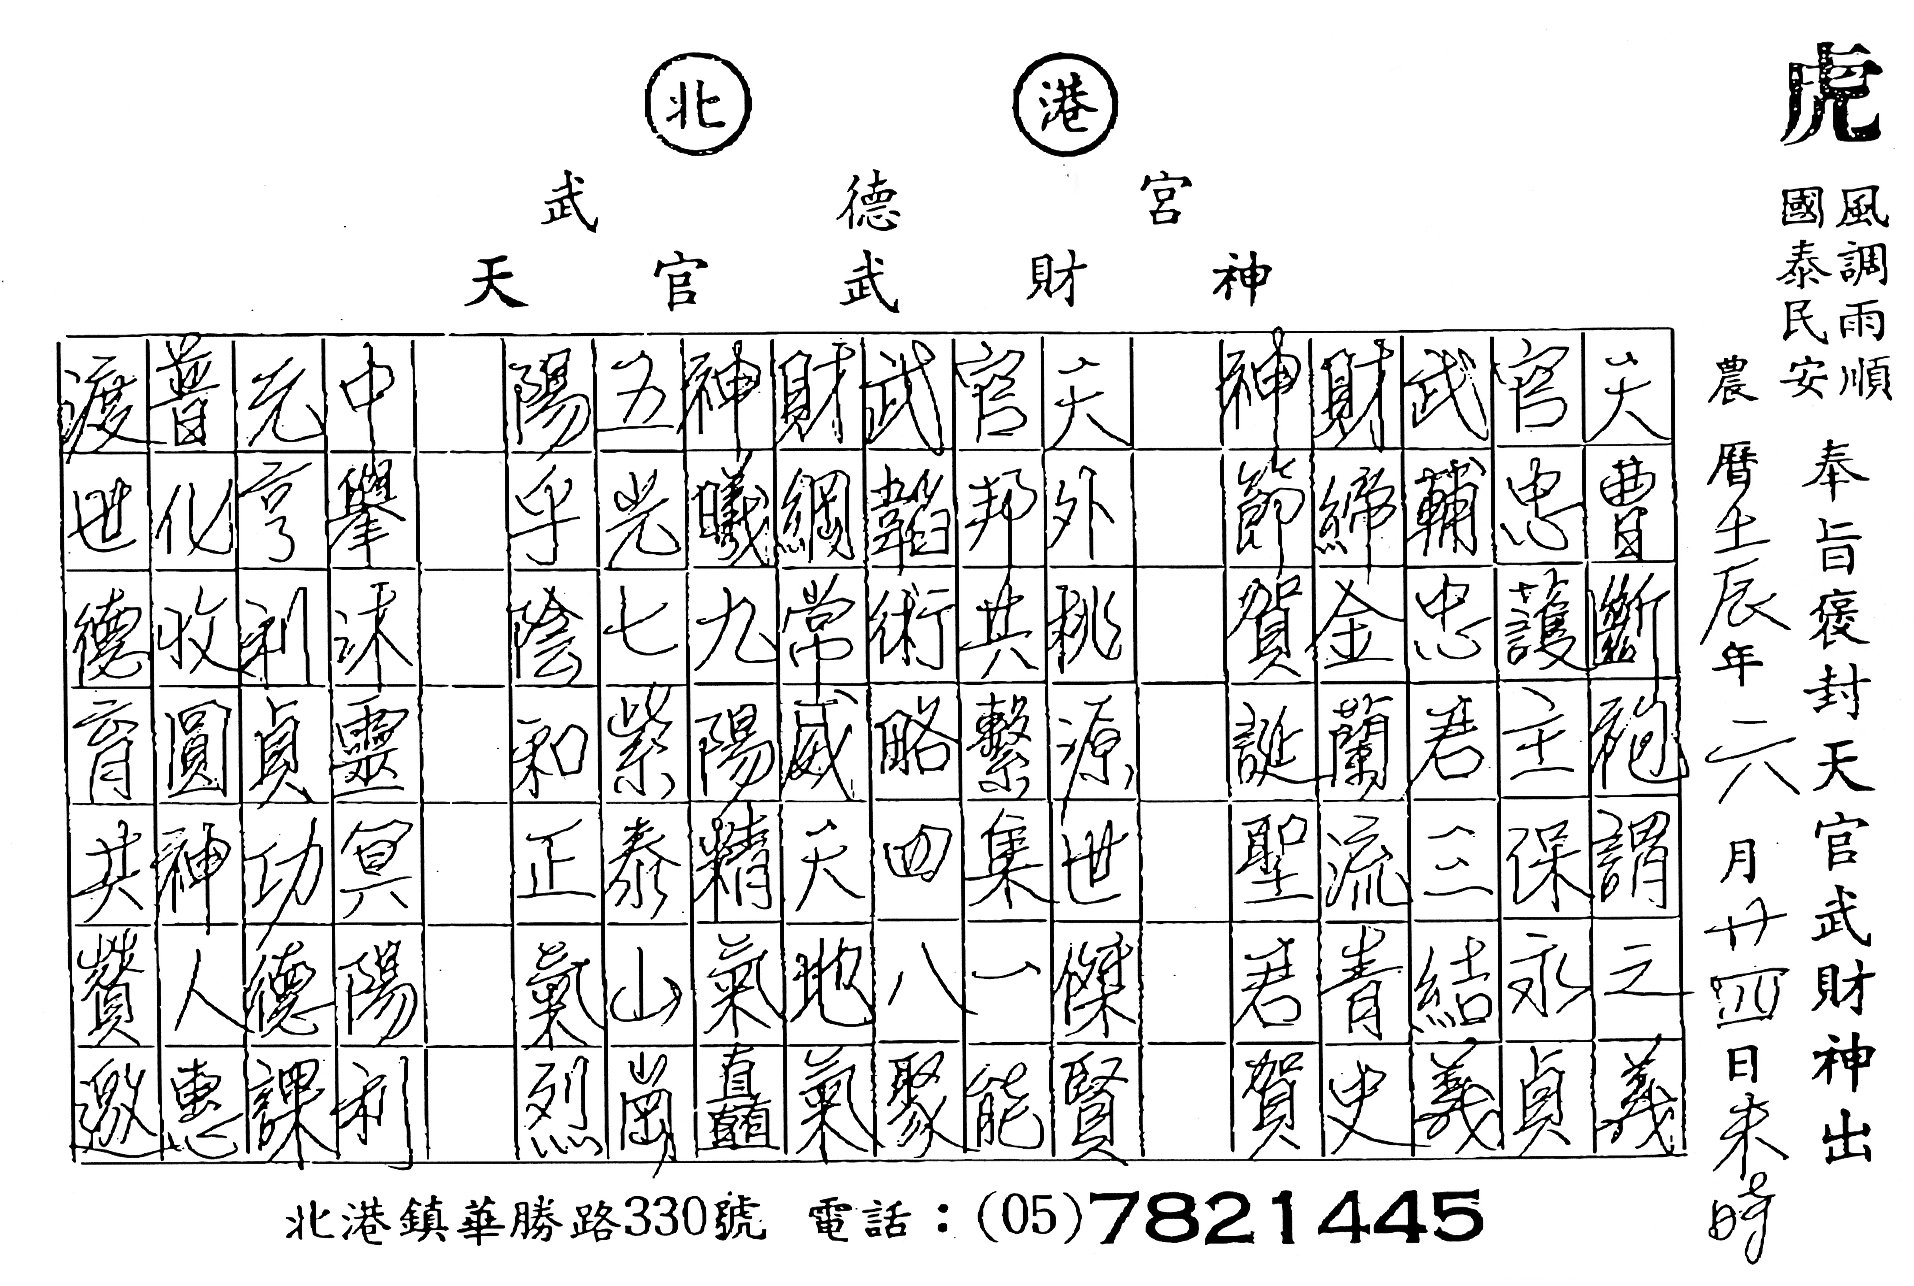 北 港
武德宮
天官武財神
虎
風調雨順
國泰民安
奉旨褒封天官武財神出
農曆壬辰年六月廿四日未時
天曹斷袍謂之義
官忠護主保永貞
武輔忠君三結義
財締金蘭流青史
神節賀誕聖君賀
天外桃源世傑賢
官邦共繫集一能
武韜術略四八聚
財綱常威天地氣
神曦九陽精氣矗
五光七紫泰山崗
陽乎陰和正氣烈
中舉沐靈冥陽利
元亨利貞功德課
普化收圓神人惠
渡世德育共贊邀
北港鎮華勝路330號 電話：(05)7821445